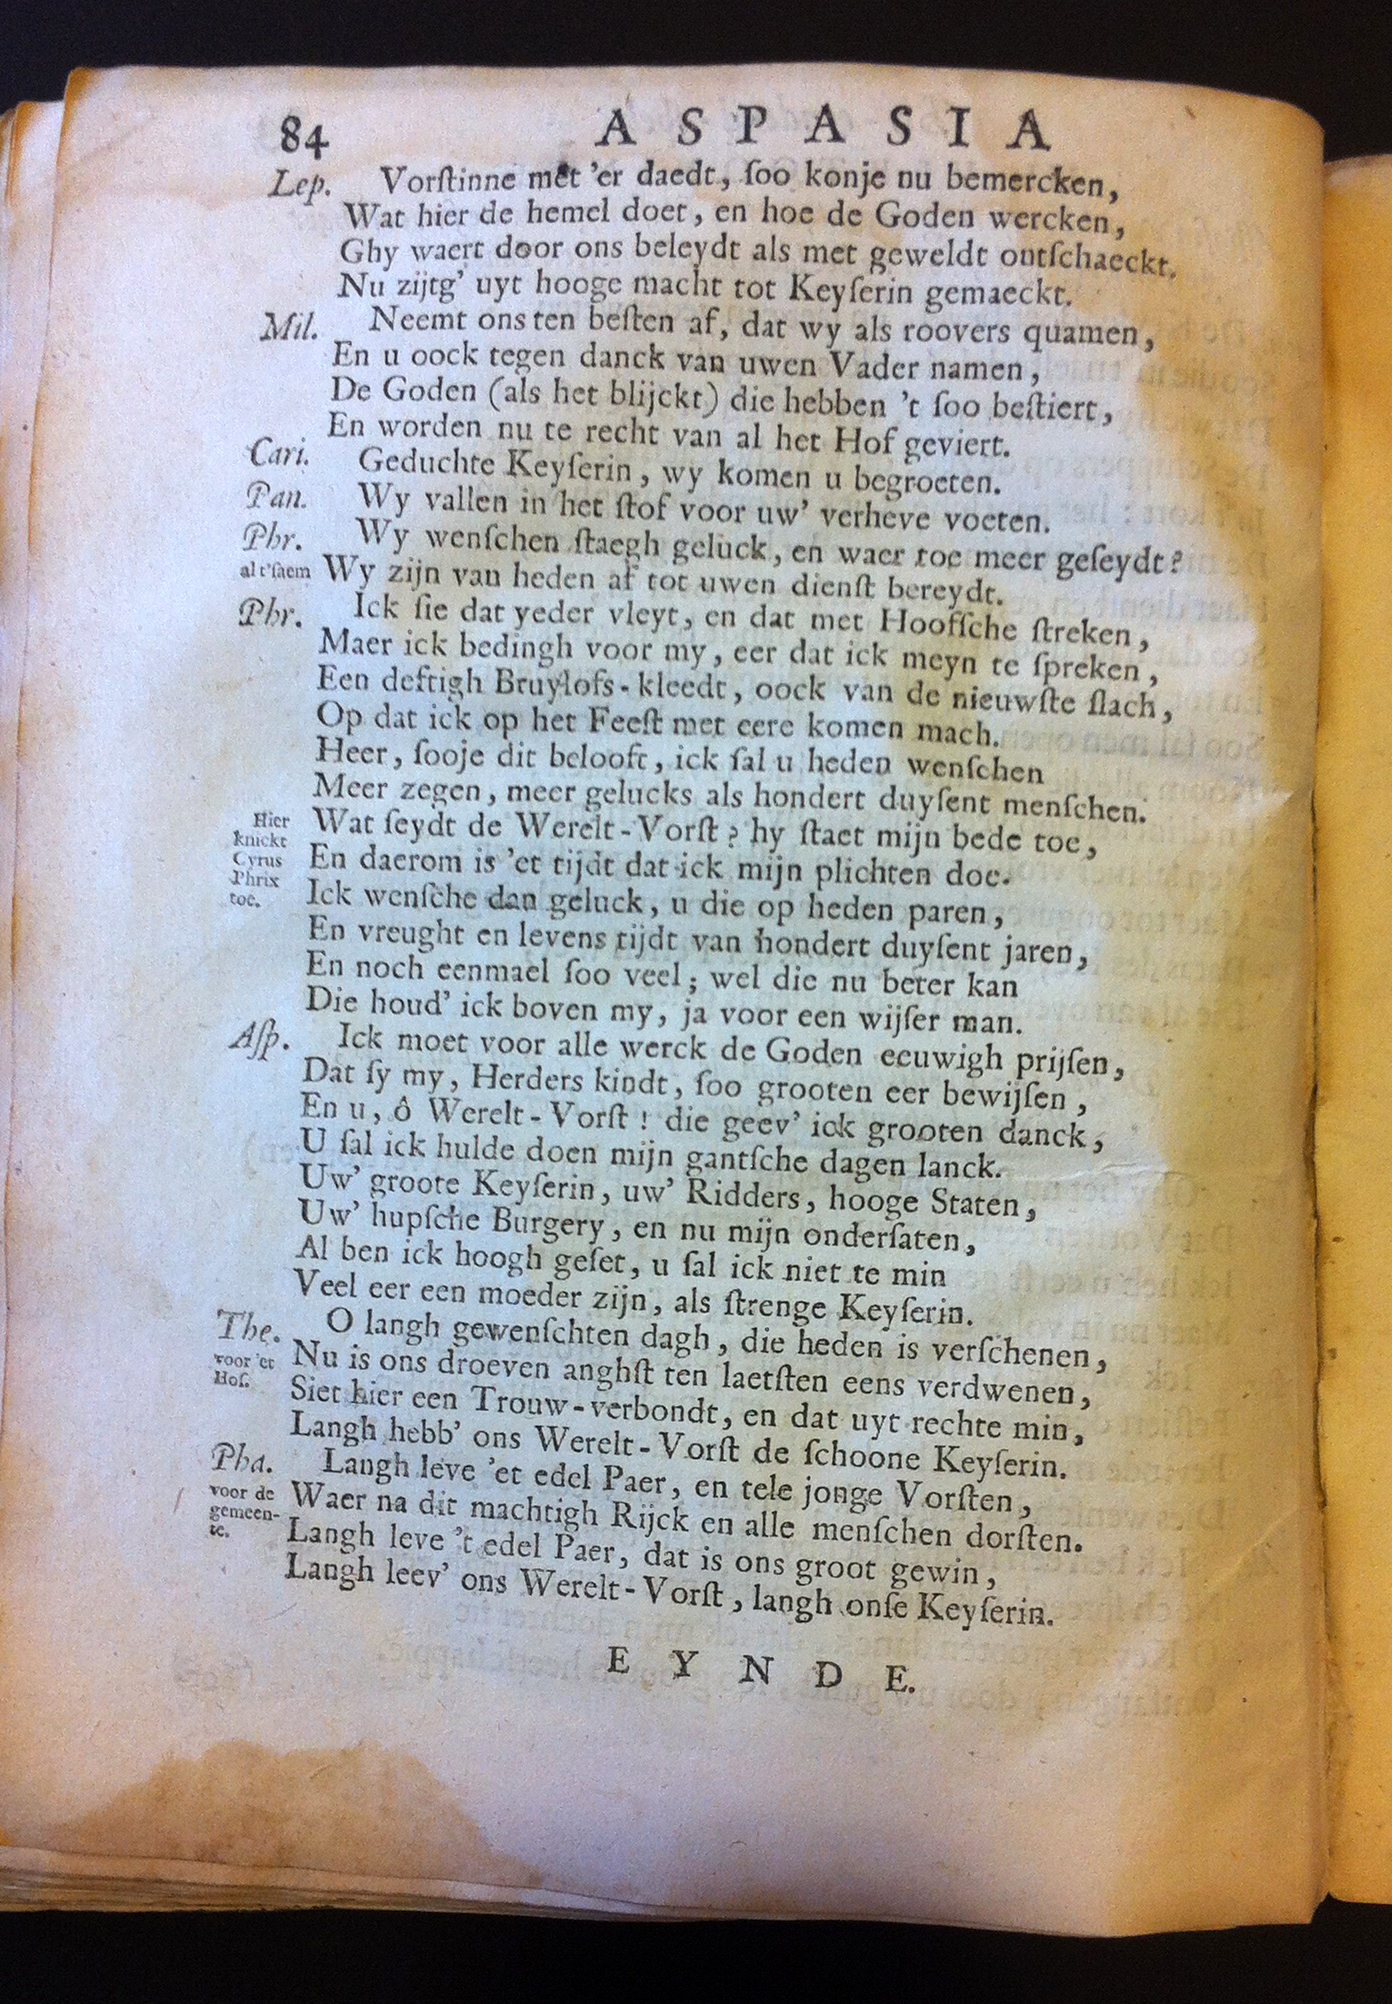 84 ASPASIA
Lep. Vorſtinne met 'er daedt, ſoo konje nu bemercken,
Wat hier de hemel doet, en hoe de Goden wercken,
Ghy waert door ons beleydt als met geweldt ontſchaeckt,
Nu zijtg' uyt hooge macht tot Keyſerin gemaeckt.
Mil. Neemt ons ten beſten af, dat wy als roovers quamen,
En u oock tegen danck van uwen Vader namen,
De Goden (als het blijckt) die hebben 't ſoo beſtiert,
En worden nu te recht van al het Hof geviert.
Cari. Geduchte Keyſerin, wy komen u begroeten.
Pan. Wy vallen in het ſtof voor uw' verheve voeten.
Phr. Wy wenſchen ſtaegh geluck, en waer toe meer geſeydt?
al t'ſaem Wy zijn van heden af tot uwen dienſt bereydt.
Phr. Ick ſie dat yeder vleyt, en dat met Hooffſche ſtreken,
Maer ick bedingh voor my, eer dat ick meyn te ſpreken,
Een deftigh Bruylofs-kleedt, oock van de nieuwſte ſlach,
Op dat ick op het Feeſt met eere komen mach.
Heer, ſooje dit belooft, ick ſal u heden wenſchen
Meer zegen, meer gelucks als hondert duyſent menſchen.
Hier knickt Cyrus Phrix toe.
Wat ſeydt de Werelt-Vorſt? hy ſtaet mijn bede toe,
En daerom is 'et tijdt dat ick mijn plichten doe.
Ick wenſche dan geluck, u die op heden paren,
En vreught en levens tijdt van hondert duyſent jaren,
En noch eenmael ſoo veel; wel die nu beter kan
Die houd' ick boven my, ja voor een wijſer man.
Aſp. Ick moet voor alle werck de Goden eeuwigh prijſen,
Dat ſy my, Herders kindt, ſoo grooten eer bewijſen,
En u, ô Werelt-Vorſt! die geev' ick grooten danck,
U ſal ick hulde doen mijn gantſche dagen lanck.
Uw' groote Keyſerin, uw' Ridders, hooge Staten,
Uw' hupſche Burgery, en nu mijn onderſaten,
Al ben ick hoogh geſet, u ſal ick niet te min
Veel eer een moeder zijn, als ſtrenge Keyſerin.
The. O langh gewenſchten dagh, die heden is verſchenen,
voor 'et Hof. Nu is ons droeven anghſt ten laetſten eens verdwenen,
Siet hier een Trouw-verbondt, en dat uyt rechte min,
Langh hebb' ons Werelt-Vorſt de ſchoone Keyſerin.
Pha. Langh leve 'et edel Paer, en tele jonge Vorſten,
voor de gemeen-te. Waer na dit machtigh Rijck en alle menſchen dorſten.
Langh leve 't edel Paer, dat is ons groot gewin,
Langh leev' ons Werelt-Vorſt, langh onſe Keyſerin.
EYNDE.